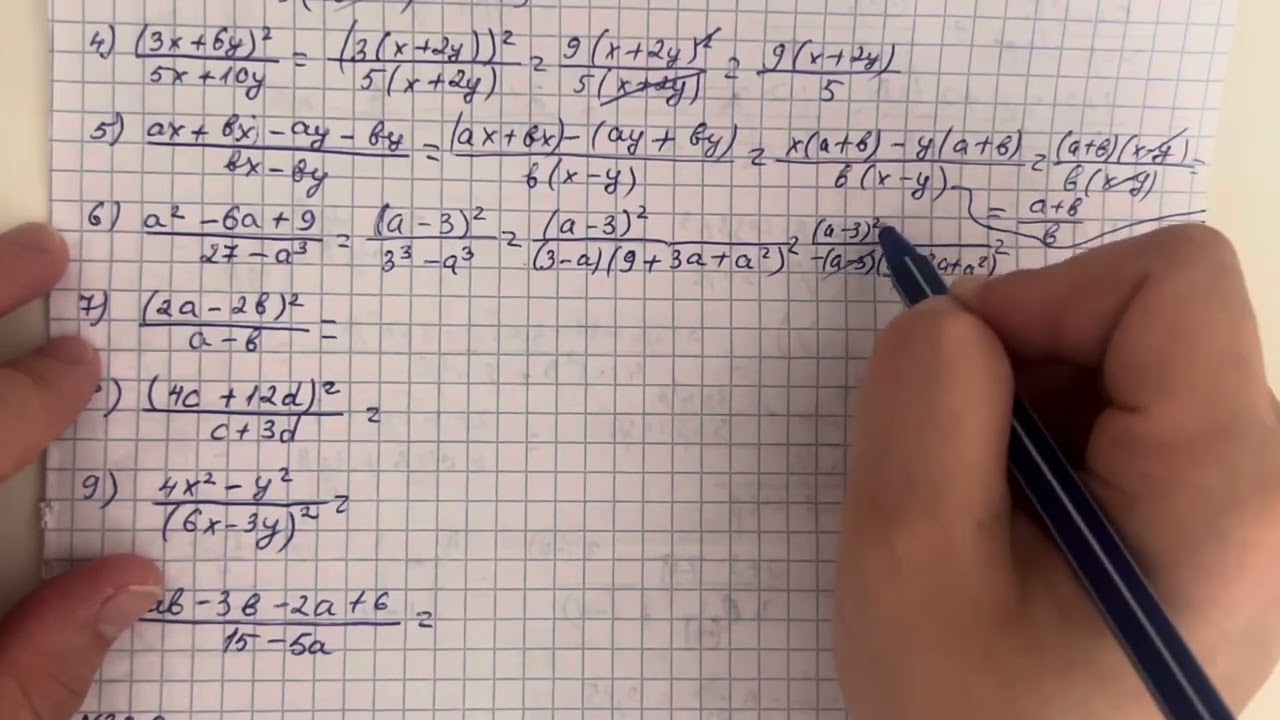 4) (3x+6y)² / 5x+10y = (3(x+2y))² / 5(x+2y) = 9(x+2y)² / 5(x+2y) = 9(x+2y) / 5
5) ax+bx-ay-by / bx-by = (ax+bx)-(ay+by) / b(x-y) = x(a+b)-y(a+b) / b(x-y) = (a+b)(x-y) / b(x-y) =
= a+b / b
6) a²-6a+9 / 27-a³ = (a-3)² / 3³-a³ = (a-3)² / (3-a)(9+3a+a²) = (a-3)² / -(a-3)( a+a²) =
7) (2a-2b)² / a-b =
) (4c+12d)² / c+3d =
9) 4x²-y² / (6x-3y)² =
ab-3b-2a+6 / 15-5a =